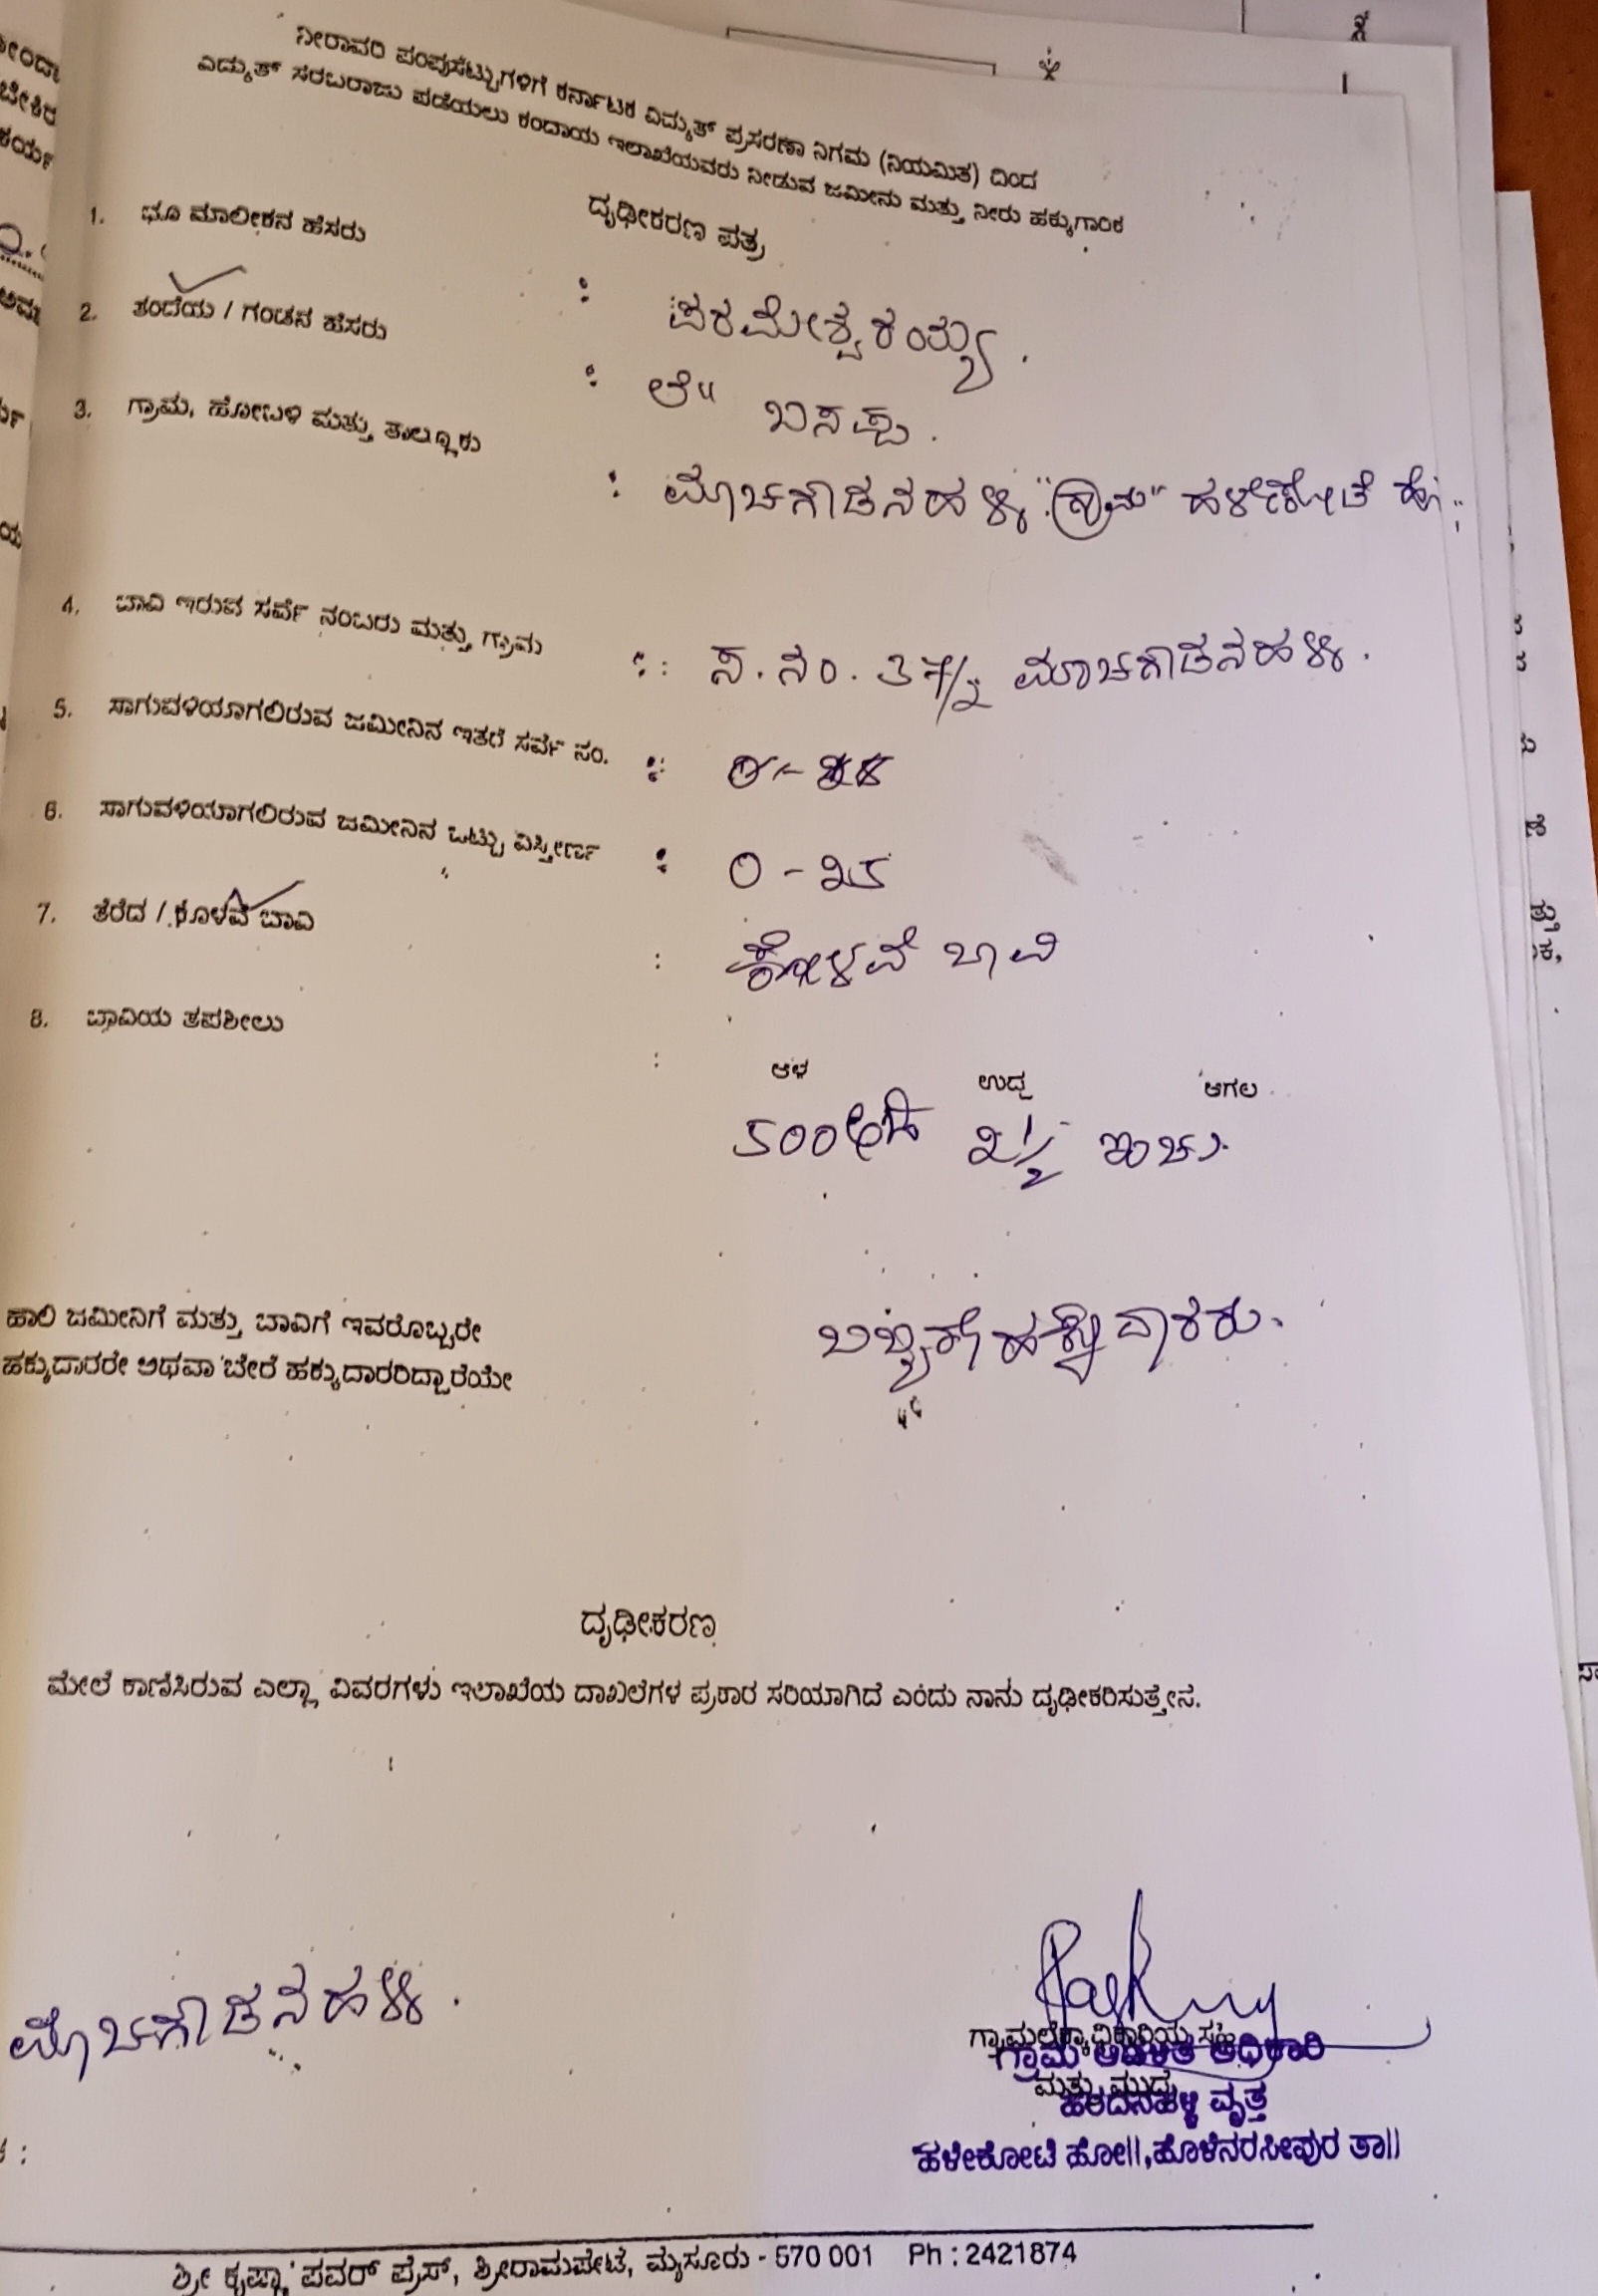 ನೀರಾವರಿ ಪಂಪುಸೆಟ್ಟುಗಳಿಗೆ ಕರ್ನಾಟಕ ವಿದ್ಯುತ್ ಪ್ರಸರಣಾ ನಿಗಮ (ನಿಯಮಿತ) ದಿಂದ
ವಿದ್ಯುತ್ ಸರಬರಾಜು ಪಡೆಯಲು ಕಂದಾಯ ಇಲಾಖೆಯವರು ನೀಡುವ ಜಮೀನು ಮತ್ತು ನೀರು ಹಕ್ಕುಗಾರಿಕೆ
ದೃಢೀಕರಣ ಪತ್ರ
1. ಭೂ ಮಾಲೀಕನ ಹೆಸರು : ಪರಮೇಶ್ವರಯ್ಯ.
2. ತಂದೆಯ / ಗಂಡನ ಹೆಸರು : ಲೇ" ಬಸಪ್ಪ.
3. ಗ್ರಾಮ, ಹೋಬಳಿ ಮತ್ತು ತಾಲ್ಲೂಕು : ಮಾಚಗೌಡನಹಳ್ಳಿ "ಗ್ರಾಮ" ಹಳೇಕೋಟೆ ಹೋ
4. ಬಾವಿ ಇರುವ ಸರ್ವೆ ನಂಬರು ಮತ್ತು ಗ್ರಾಮ : ಸ.ನಂ. 37/2 ಮಾಚಗೌಡನಹಳ್ಳಿ.
5. ಸಾಗುವಳಿಯಾಗಲಿರುವ ಜಮೀನಿನ ಇತರೆ ಸರ್ವೆ ನಂ. :
6. ಸಾಗುವಳಿಯಾಗಲಿರುವ ಜಮೀನಿನ ಒಟ್ಟು ವಿಸ್ತೀರ್ಣ : 0-೩೫
7. ತೆರೆದ / ಕೊಳವೆ ಬಾವಿ : ಕೊಳವೆ ಬಾವಿ
8. ಬಾವಿಯ ತಪಶೀಲು :
ಆಳ ಉದ್ದ ಅಗಲ
500 ಅಡಿ ೩ 1/2 ಇಂಚು
ಹಾಲಿ ಜಮೀನಿಗೆ ಮತ್ತು ಬಾವಿಗೆ ಇವರೊಬ್ಬರೇ
ಹಕ್ಕುದಾರರೇ ಅಥವಾ ಬೇರೆ ಹಕ್ಕುದಾರರಿದ್ದಾರೆಯೇ
ಒಬ್ಬರೇ ಹಕ್ಕುದಾರರು.
ದೃಢೀಕರಣ
ಮೇಲೆ ಕಾಣಿಸಿರುವ ಎಲ್ಲಾ ವಿವರಗಳು ಇಲಾಖೆಯ ದಾಖಲೆಗಳ ಪ್ರಕಾರ ಸರಿಯಾಗಿದೆ ಎಂದು ನಾನು ದೃಢೀಕರಿಸುತ್ತೇನೆ.
ಮಾಚಗೌಡನಹಳ್ಳಿ.
ಗ್ರಾಮಲೆಕ್ಕಾಧಿಕಾರಿಯ ಸಹಿ
ಗ್ರಾಮ ಆಡಳಿತ ಅಧಿಕಾರಿ
ಮತ್ತು ಮುದ್ರೆ
ಹರದನಹಳ್ಳಿ ವೃತ್ತ
ಹಳೇಕೋಟೆ ಹೋ||, ಹೊಳೆನರಸೀಪುರ ತಾ||
ಶ್ರೀ ಕೃಷ್ಣಾ ಪವರ್ ಪ್ರೆಸ್, ಶ್ರೀರಾಮಪೇಟೆ, ಮೈಸೂರು - 570 001 Ph : 2421874